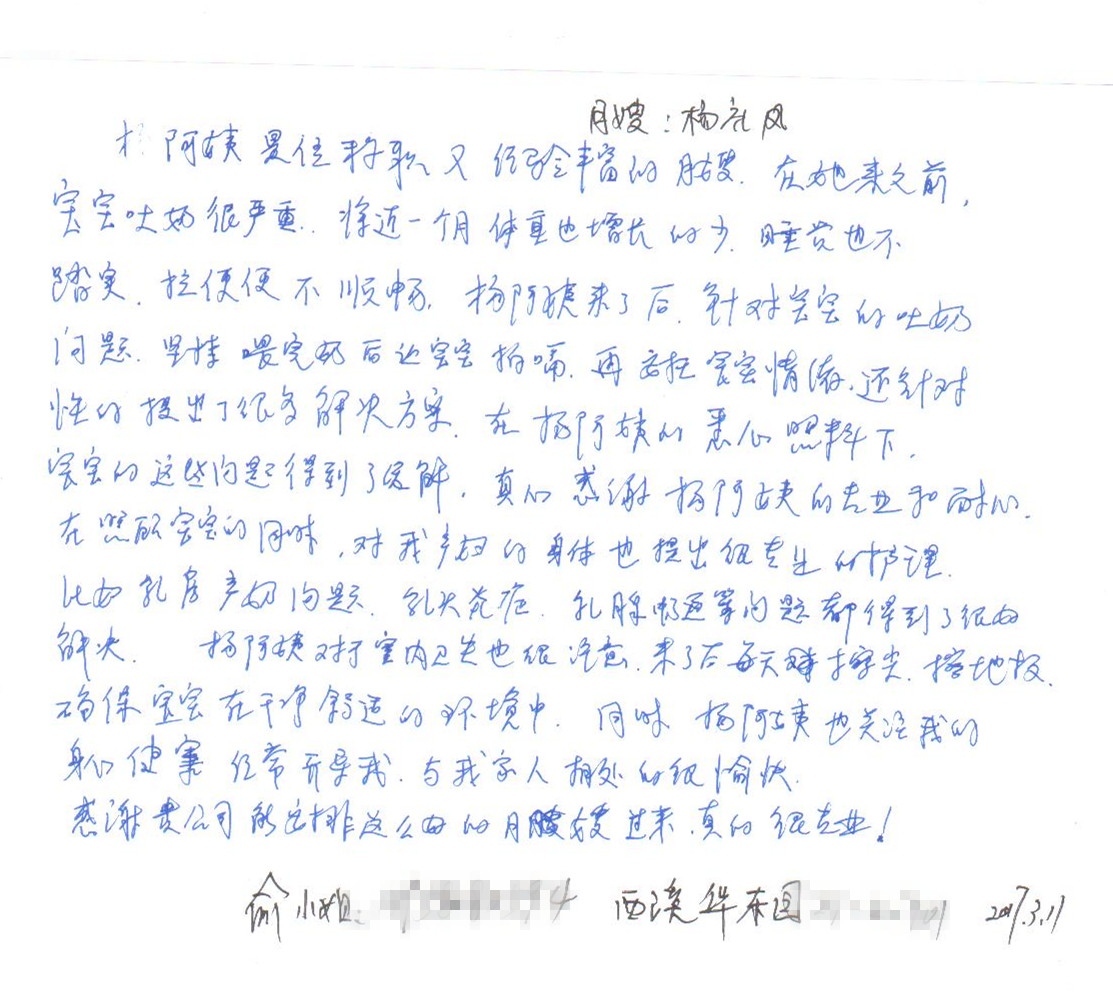 月嫂：杨在风
杨阿姨是位称职又经验丰富的月嫂．在她来之前，
宝宝吐奶很严重．将近一个月体重也增长的少．睡觉也不
踏实．拉便便不顺畅．杨阿姨来了后．针对宝宝的吐奶
问题．坚持喂完奶后让宝宝拍嗝．再安抚宝宝情绪．还针对
性的提出了很多解决方案．在杨阿姨的悉心照料下．
宝宝的这些问题得到了缓解．真心感谢杨阿姨的专业和耐心．
在照顾宝宝的同时，对我产妇的身体也提出很专业的护理．
比如乳房产奶问题．乳头 乳腺畅通等问题都得到了很好
解决．杨阿姨对于室内卫生也很注意．来了后每天擦 擦地板．
确保宝宝在干净舒适的环境中．同时杨阿姨也关注我的
身心健康 经常开导我．与我家人相处的很愉快．
感谢贵公司能安排这么好的月嫂过来．真的很专业！
俞小姐： 西溪华东园 2017.3.11